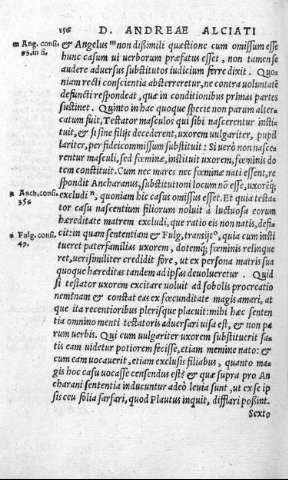 156 D. ANDREAE ALCIATI
m Ang. consi.
& Angelus m non dissimili quæstione cum omissum esse
hunc casum ui uerborum præfatus esset, non tamen se
audere aduersus substitutos iudicium ferre dixit. Quo
niam recti conscientia absterreretur, ne contra uoluntatē
defuncti respondeat, quæ in conditionibus primas partes
sustinet. Quinto in hac quoque specie non parum alter
catum fuit, Testator masculos qui sibi nascerentur insti
tuit, & si sine filijs decederent, uxorem uulgariter, pupil
lariter, per fideicommissum substituit: Si uerò non nasce
rentur masculi, sed fœminæ, instituit uxorem, fœminis do
tem constituit. Cum nec mares nec fœminæ nati essent, re
spondit Ancharanus, substitutioni locum nō esse, uxoreq́;
n Anch. consi.
356
excludi n, quoniam hic casus omissus esset. Et quia testa
tor casu nascentium filiorum noluit à luctuosa eorum
hæreditate matrem excludi, quæ ratio eis non natis, defi-
o Fulg. consi.
49.
cit: in quam sententiam & Fulg. transijt o, quia cum insti
tueret paterfamiliâs uxorem, dotemq́; fœminis relinque
ret, uerisimiliter credidit fore, ut ex persona matris sua
quoque hæreditas tandem ad ipsas deuolueretur. Quid
si testator uxorem excitare uoluit ad sobolis procreatio
nem? nam & constat eas ex fœcunditate magis amari, at
que ita recentioribus plerisque placuit: mihi hæc senten
tia omnino menti testatoris aduersari uisa est, & non pa
rum uerbis. Qui cum uulgariter uxorem substituerit fa-
tis eam uidetur potiorem fecisse, etiam memine nato: &
cum eam uocauerit, etiam exclusis filiabus, quanto ma-
gis hoc casu uocasse censendus est? & quæ supra pro An
charani sententia inducuntur adeò leuia sunt, ut ex se ip
sis ceu folia farfari, quod Plautus inquit, difflari possint.
Sexto